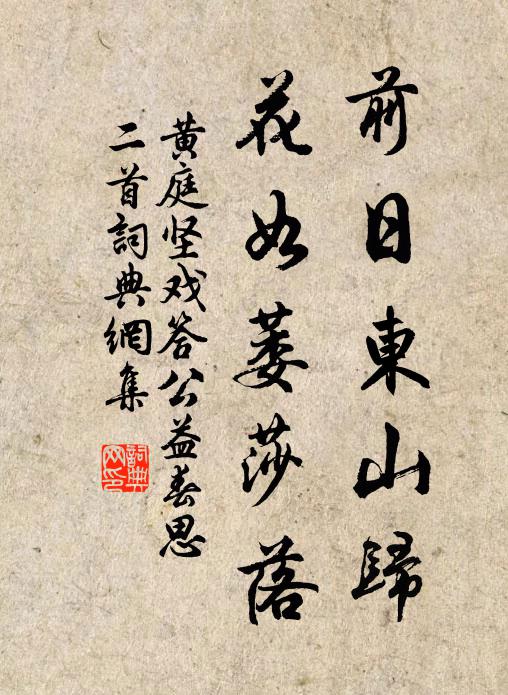 前日東山歸
花如萎莎落
黄庭坚戏答公益春思
二首詞典網集
詞典网印